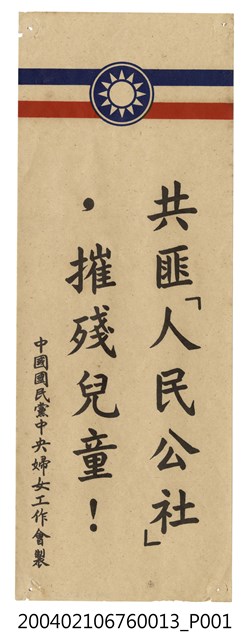 共匪「人民公社」
，摧殘兒童！
中國國民黨中央婦女工作會製
200402106760013_P001